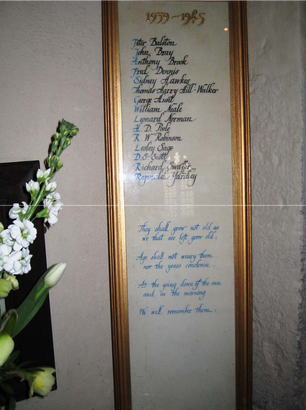 1939-1945
Peter Balston
John Bray
Anthony Brook
Fred Dennis
Sidney Hawkes
Thomas Harry Hill-Walker
George Hunt
William Neale
Leonard
A. D. Pole
R W Robinson
Lesley Sage
D.C.
Richard
Reginald Yardley
They shall grow not old as
we that are left grow old,
Age shall not weary them
nor the years condemn.
At the going down of the sun
and in the morning
We will remember them.